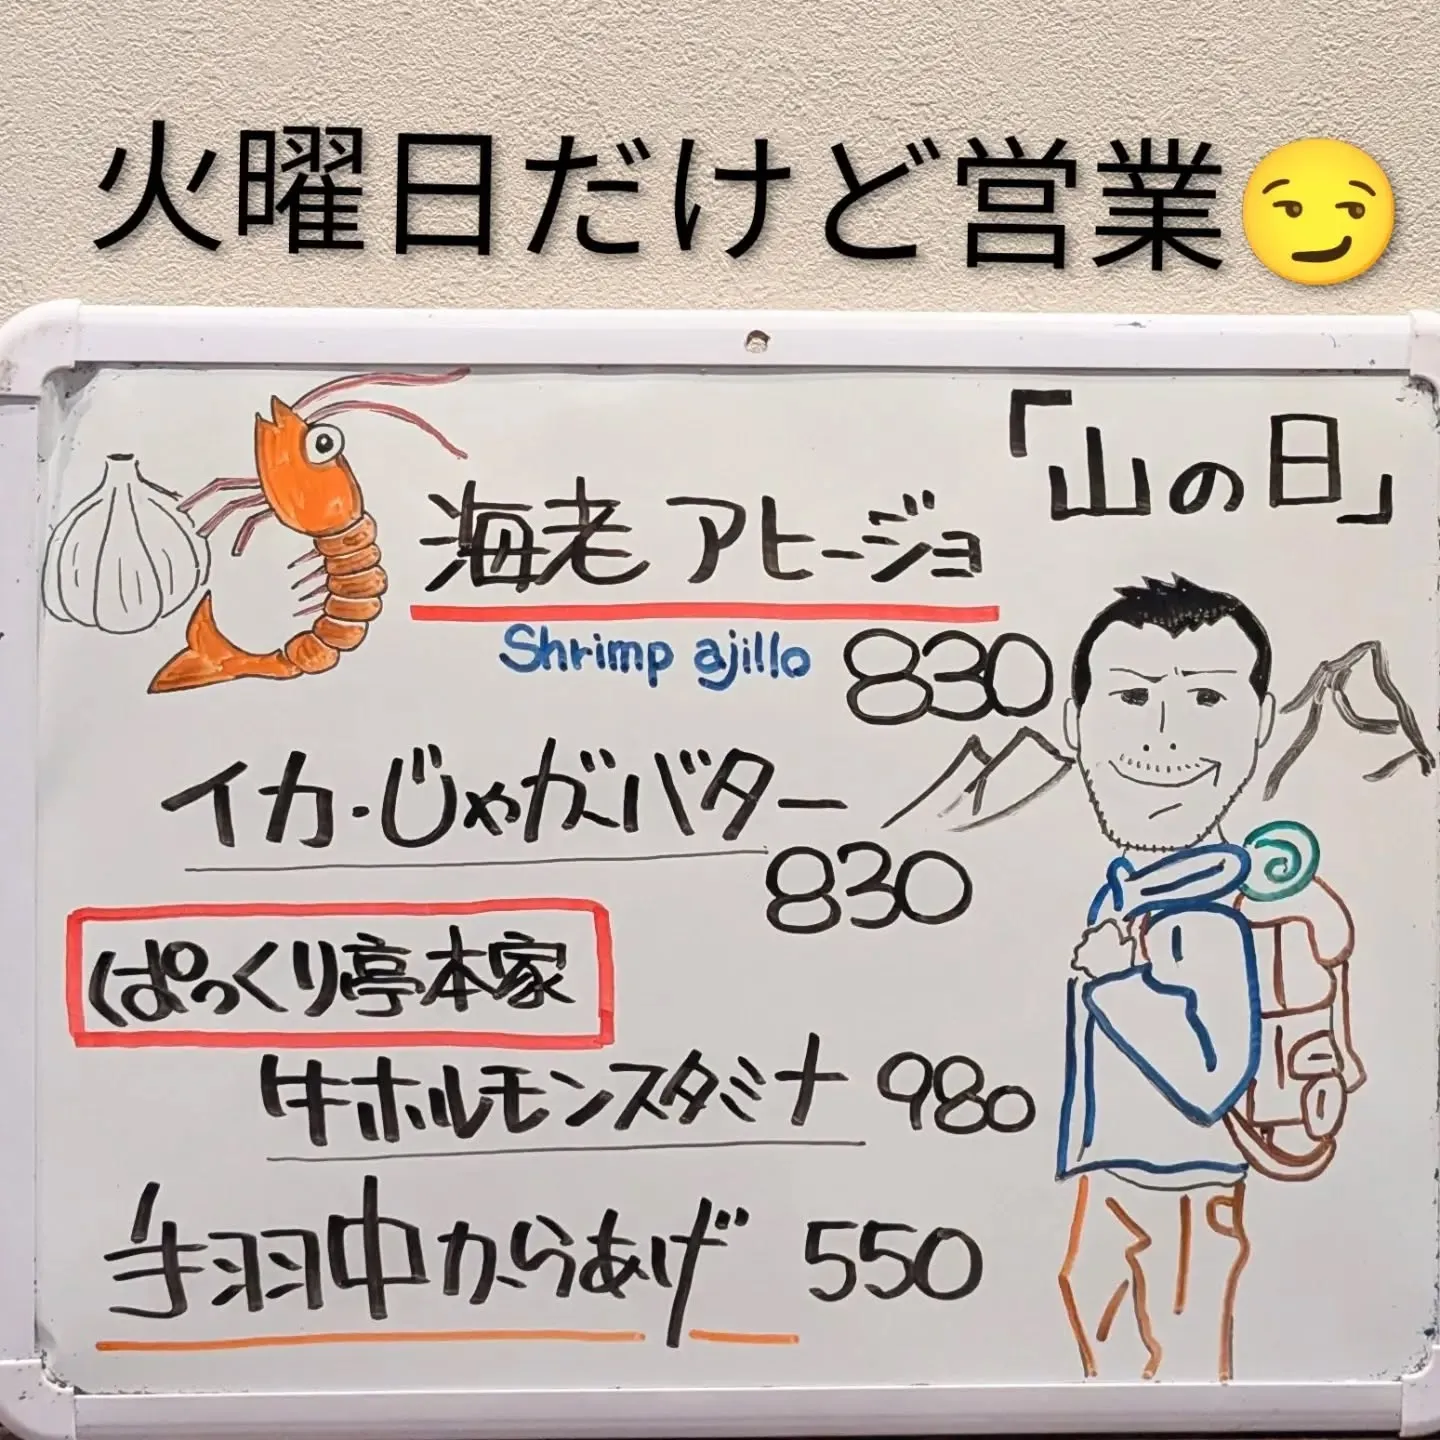 火曜日だけど営業😏
「山の日」
海老 アヒージョ
Shrimp ajillo 830
イカ・じゃがバター
830
ぱっくり亭本家
牛ホルモンスタミナ 980
手羽中からあげ 550